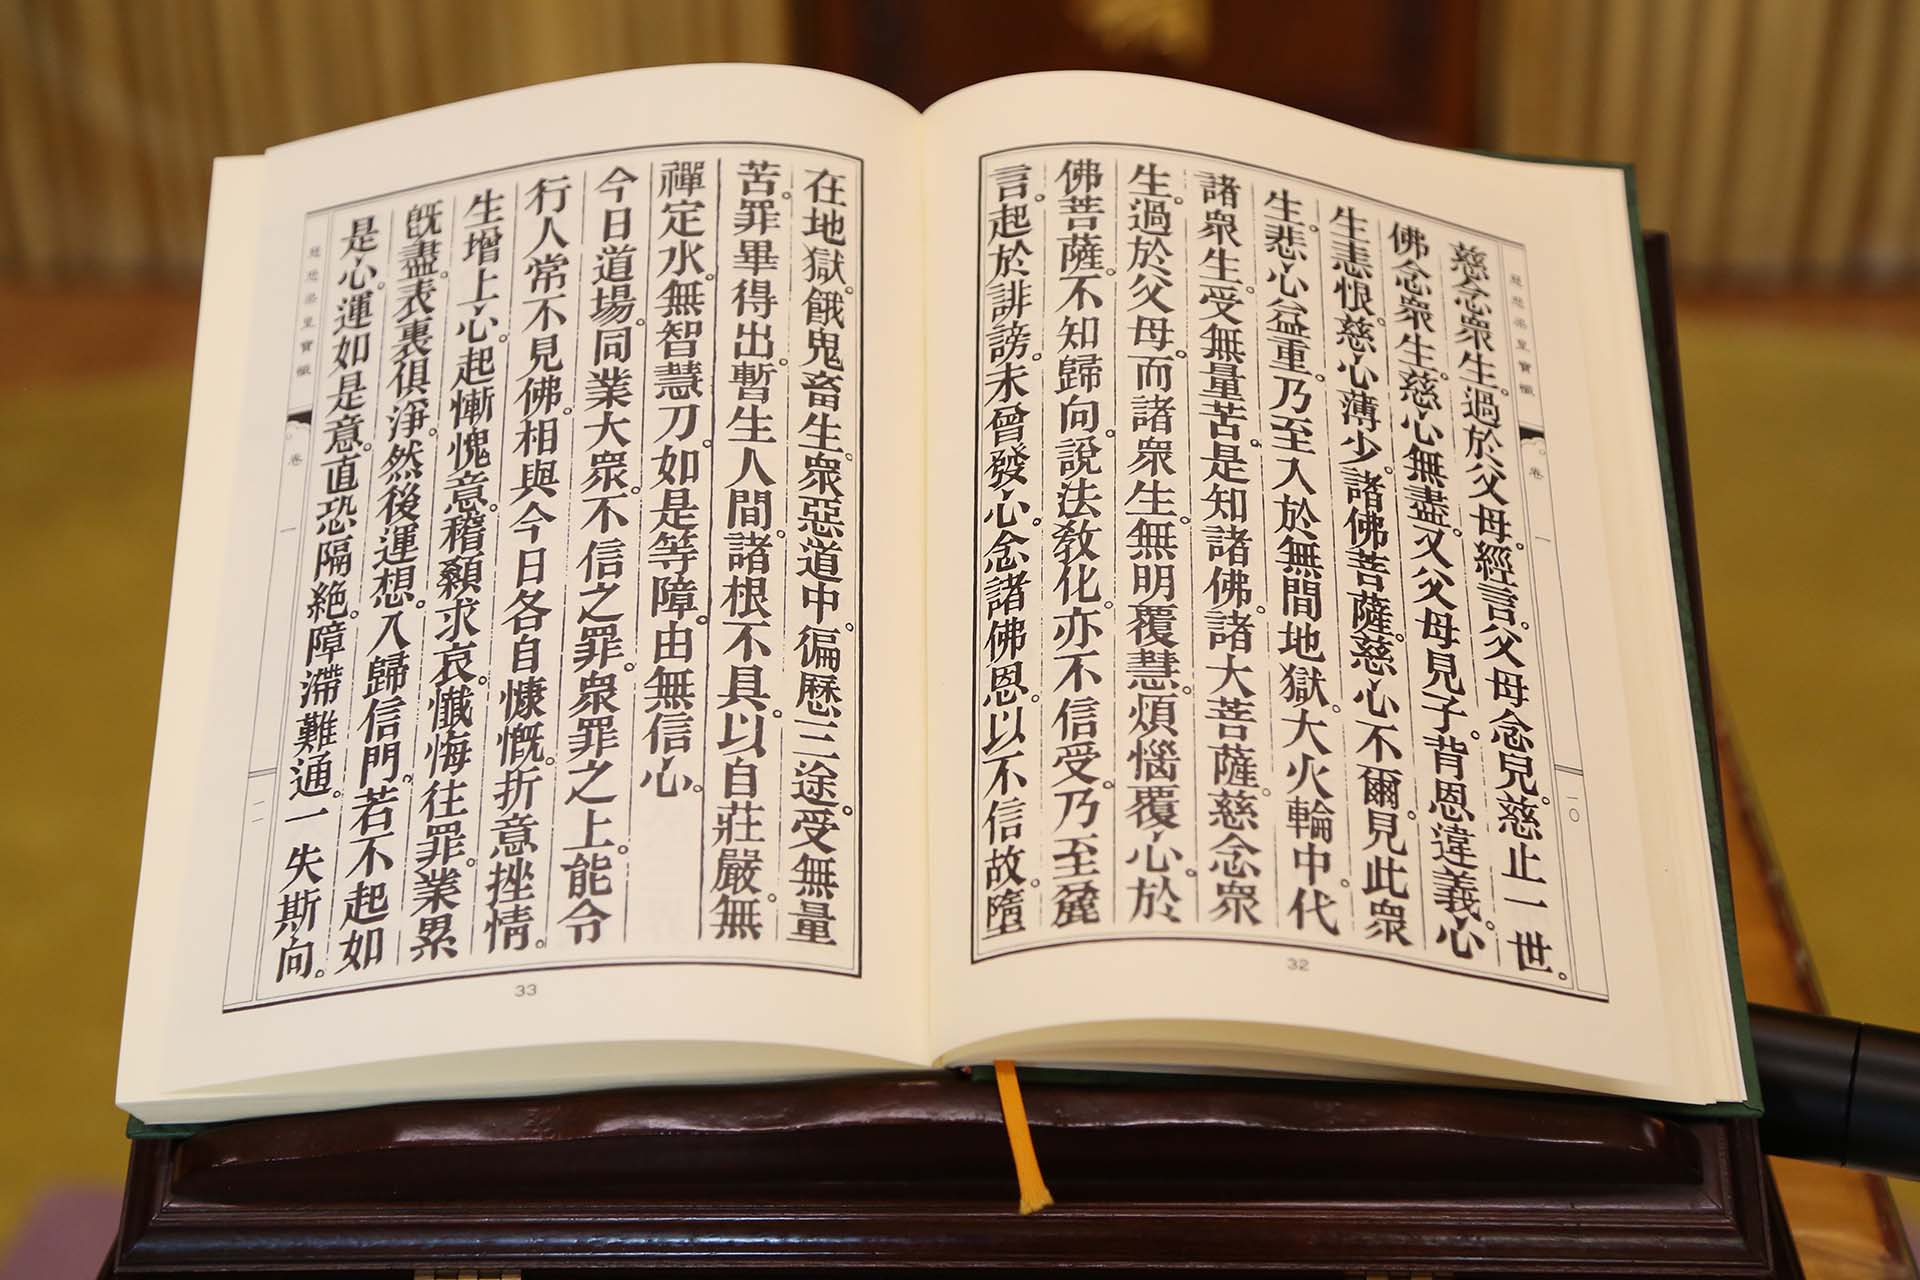 慈悲梁皇寶懺
卷一
一〇
慈念眾生。過於父母。經言。父母念兒。慈止一世。
佛念眾生。慈心無盡。又父母見子。背恩違義。心
生恚恨。慈心薄少。諸佛菩薩。慈心不爾。見此眾
生。悲心益重。乃至入於無間地獄。大火輪中。代
諸眾生。受無量苦。是知諸佛。諸大菩薩。慈念眾
生。過於父母。而諸眾生。無明覆慧。煩惱覆心。於
佛菩薩。不知歸向。說法教化。亦不信受。乃至麤
言。起於誹謗。未曾發心。念諸佛恩。以不信故。墮
32
在地獄。餓鬼畜生。眾惡道中。徧歷三途。受無量
苦。罪畢得出。暫生人間。諸根不具。以自莊嚴。無
禪定水。無智慧刀。如是等障。由無信心。
今日道場。同業大眾。不信之罪。眾罪之上。能令
行人常不見佛。相與今日各自慷慨。折意挫情。
生增上心。起慚愧意。稽顙求哀。懺悔往罪。業累
既盡。表裏俱淨。然後運想。入歸信門。若不起如
是心。運如是意。直恐隔絕。障滯難通。一失斯向。
慈悲梁皇寶懺
卷一
一一
33